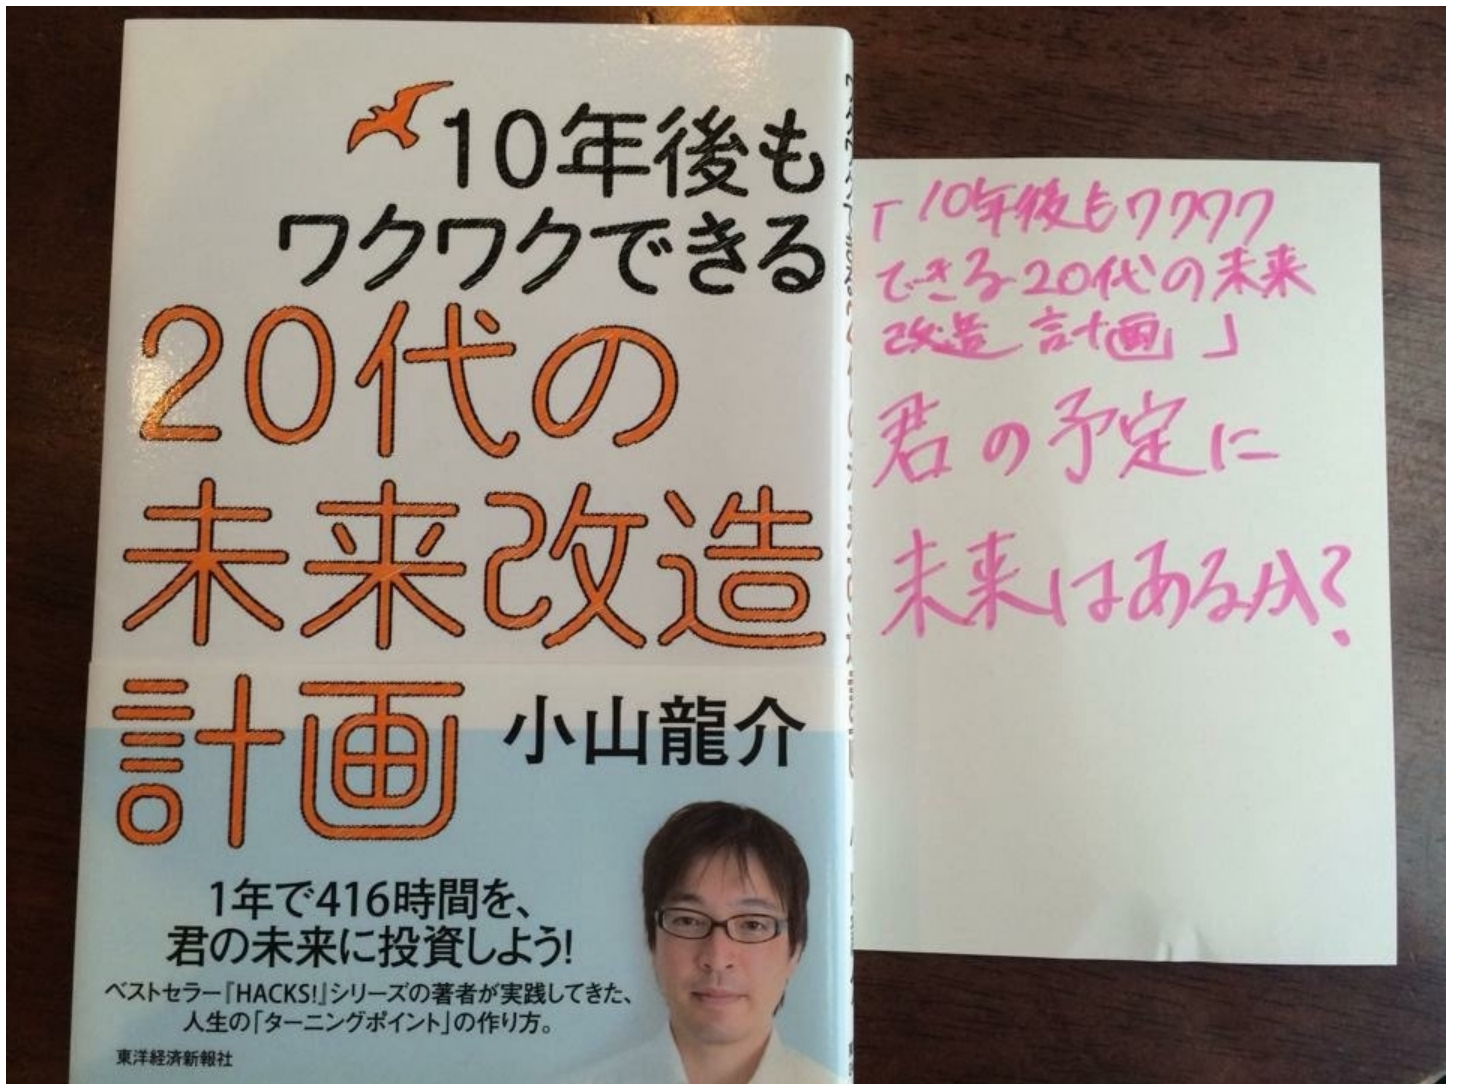 10年後も
ワクワクできる
20代の
未来改造
計画
小山龍介
1年で416時間を、
君の未来に投資しよう!
ベストセラー『HACKS!』シリーズの著者が実践してきた、
人生の「ターニングポイント」の作り方。
東洋経済新報社
「10年後もワクワク
できる20代の未来
改造計画」
君の予定に
未来はあるか?